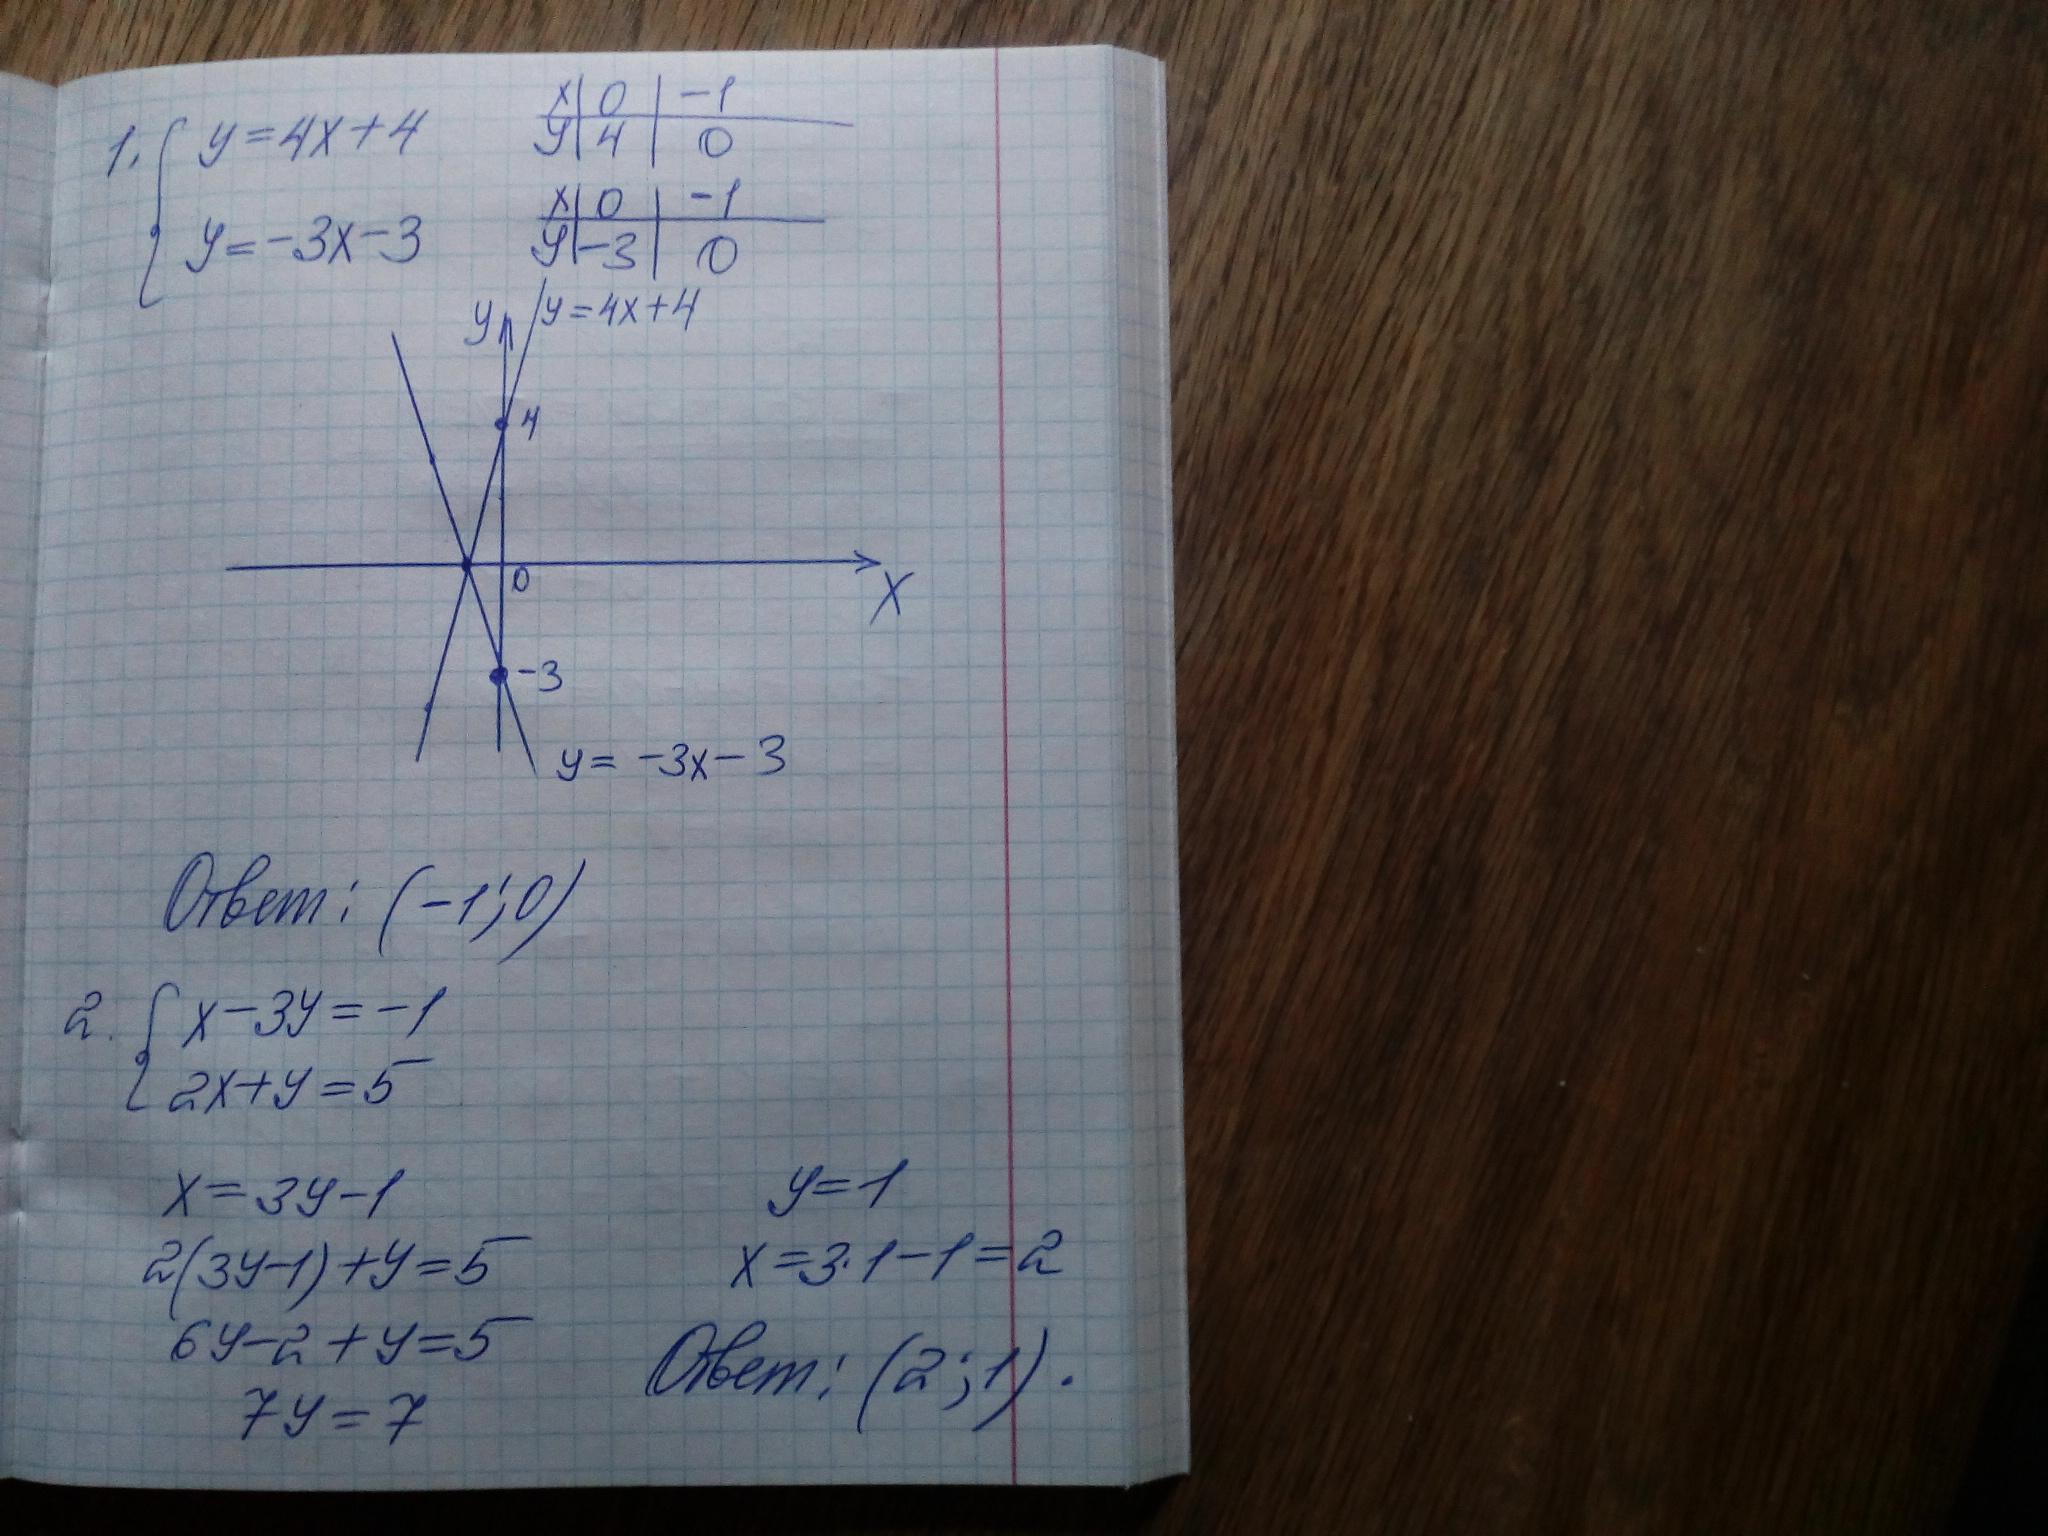 1. { y = 4x + 4
x | 0 | -1
y | 4 | 0
y = -3x - 3
x | 0 | -1
y | -3 | 0
y
y = 4x + 4
4
0
x
-3
y = -3x - 3
Ответ: (-1; 0)
2. { x - 3y = -1
2x + y = 5
x = 3y - 1
2(3y - 1) + y = 5
6y - 2 + y = 5
7y = 7
y = 1
x = 3·1 - 1 = 2
Ответ: (2; 1).